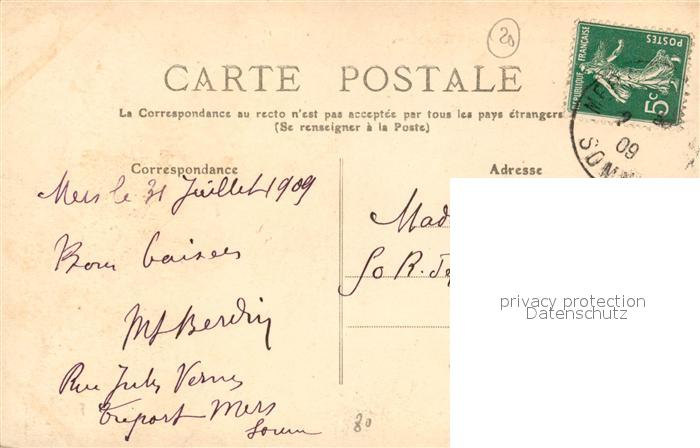 20
CARTE POSTALE
La Correspondance au recto n'est pas acceptée par tous les pays étrangers
(Se renseigner à la Poste)
REPUBLIQUE FRANÇAISE
POSTES
5c
09
SOMM
Correspondance
Adresse
Mers le 31 Juillet 1909
Bons baisers
Mad
R.
Rue Jules Vernes
Treport Mers
Somme
80
privacy protection
Datenschutz